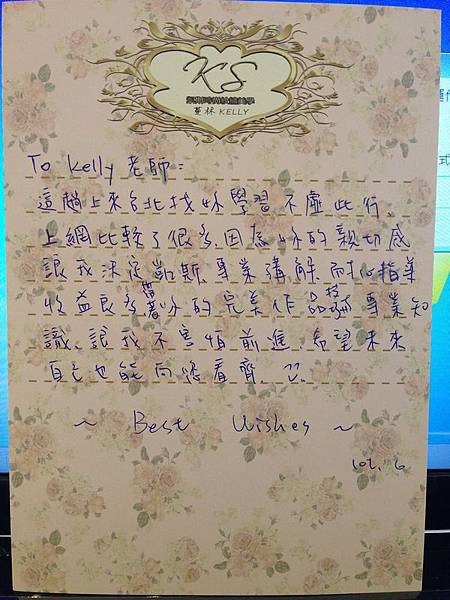 KS
蔓林 KELLY
To Kelly 老師：
這趟上來台北找妳學習不虛此行、
上網比較了很多、因為妳的親切感
讓我決定凱斯、專業講解、耐心指導
收益良多、看著妳的完美作品 專業知
識、讓我不畏 前進、希望未來
自己也能向您看齊.
~ Best Wishes ~
101. 6